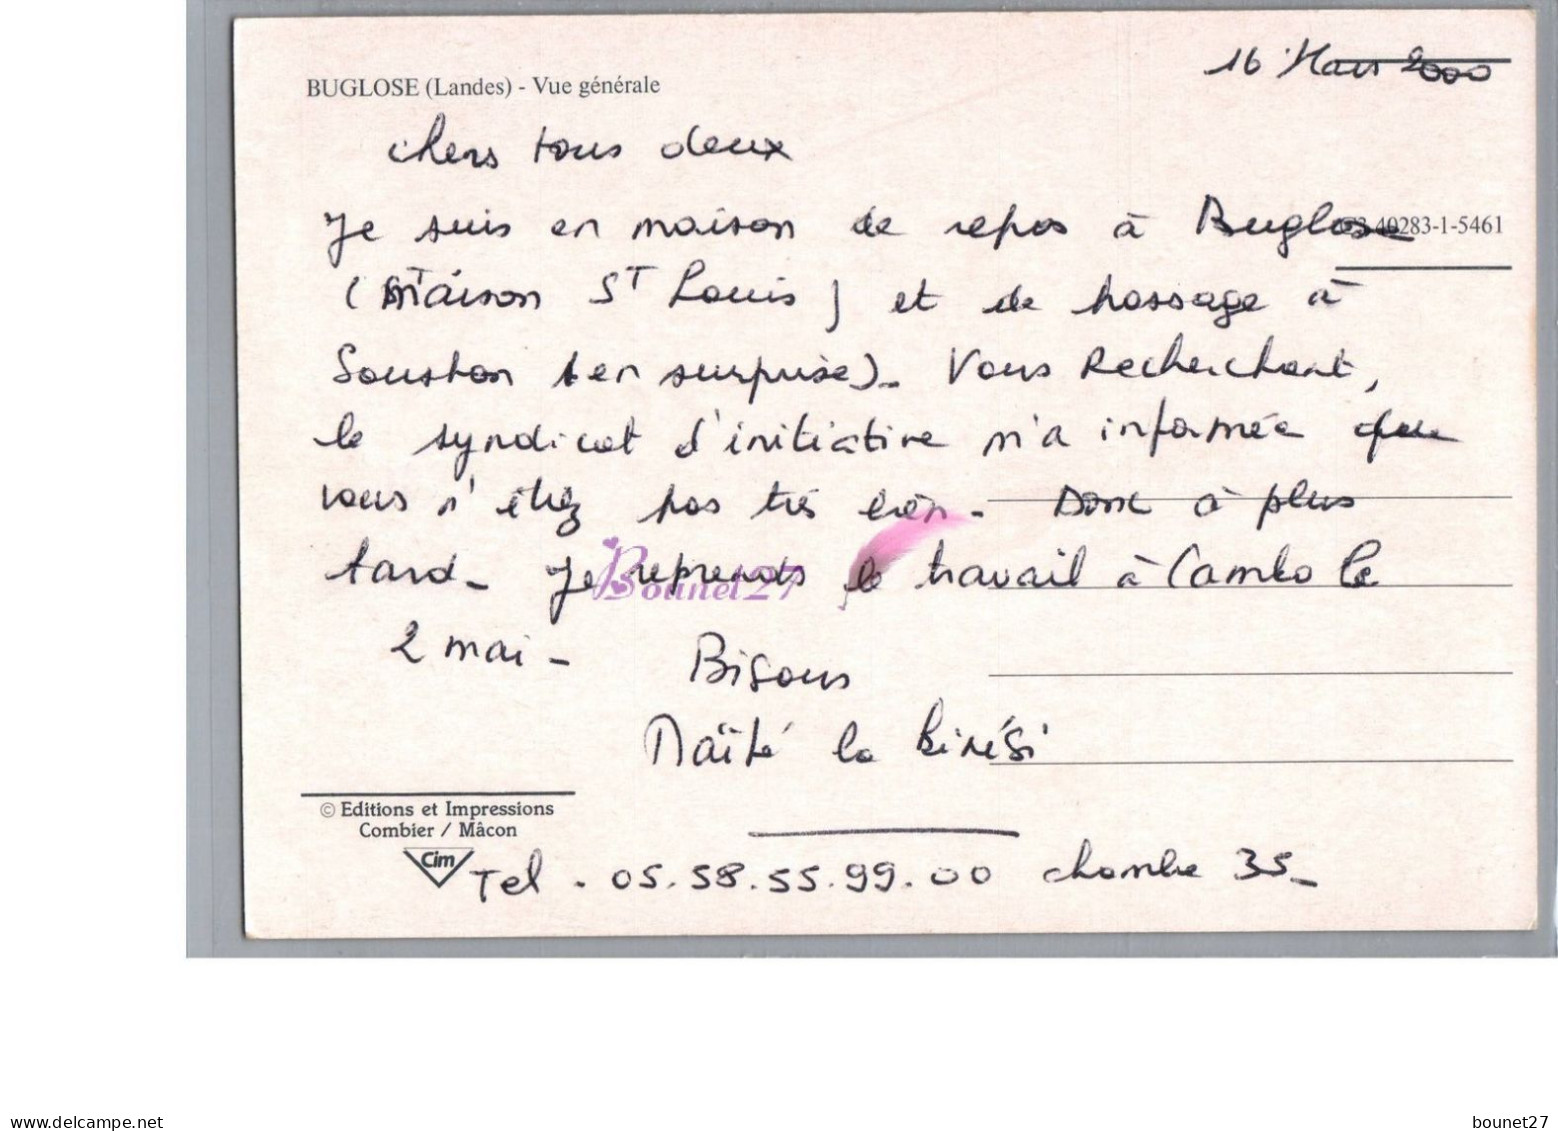 16 Mars 2000
BUGLOSE (Landes) - Vue générale
chers tous deux
Je suis en maison de repos à Buglose
40283-1-5461
(Maison ST Louis) et de passage à
Souston (en surprise). Vous Recherchant,
le syndicat d'initiative m'a informée que
vous n'étiez pas très bien. Donc à plus
tard - Je reprends le travail à Cambo le
Bounet27
2 mai -
Bisous
Maïté la
© Editions et Impressions
Combier / Mâcon
Cim
Tel. 05.58.55.99.00 chambre 35 -
www.delcampe.net
bounet27